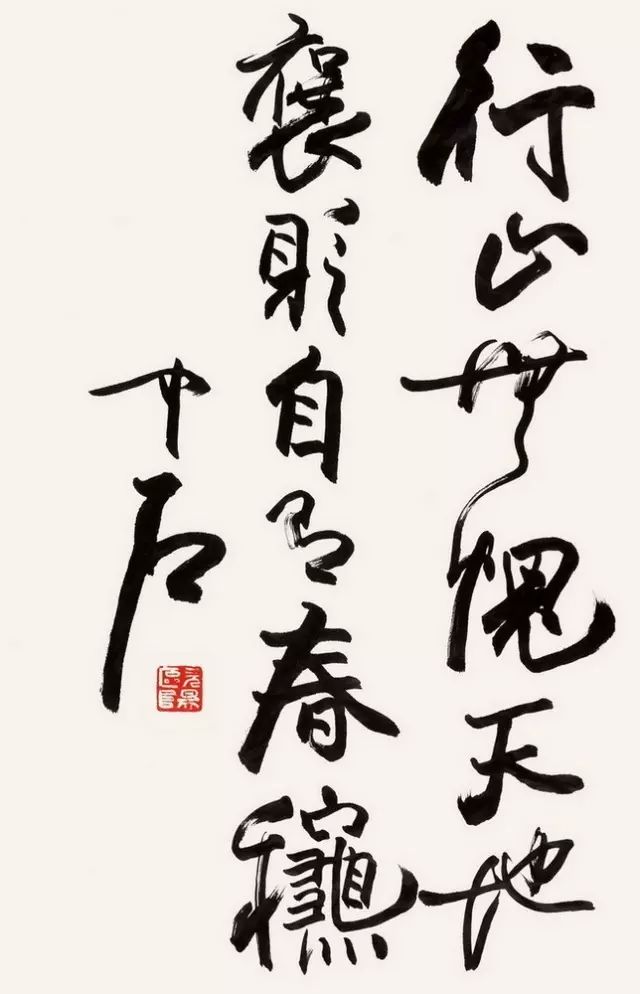 行止無愧天地
褒貶自有春龝
中石